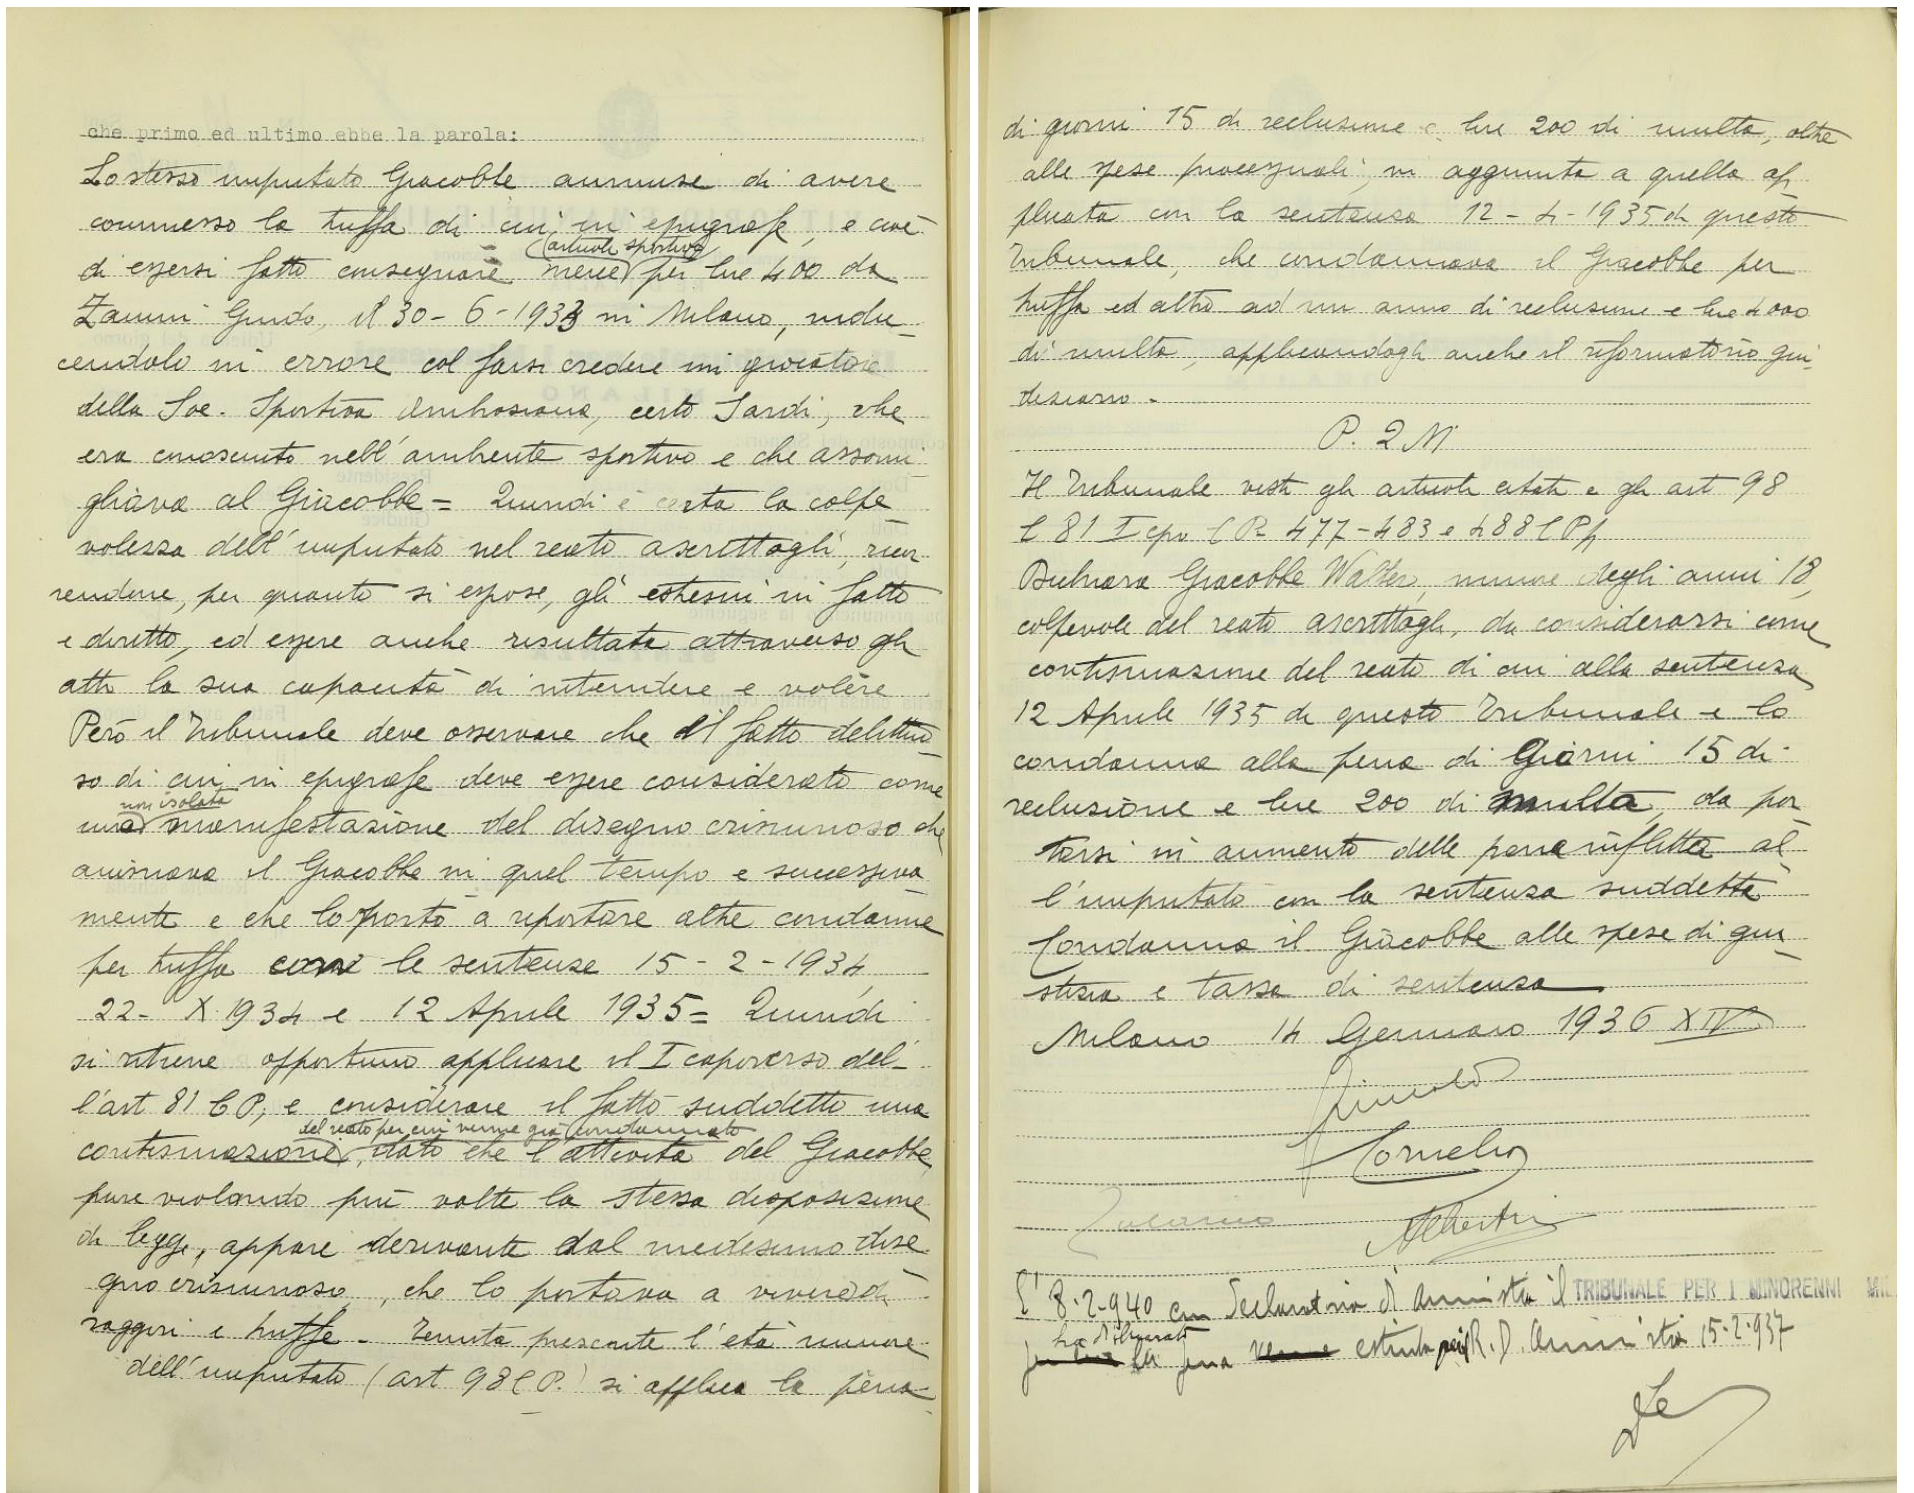 che primo ed ultimo ebbe la parola:
Lo stesso imputato Giacobbe ammise di avere
commesso la truffa di cui in epigrafe, e cioè
(articoli sportivi)
di essersi fatto consegnare merce per lire 400 da
Zanini Guido, il 30-6-1933 in Milano, indu-
cendolo in errore col farsi credere un giocatore
della Soc. Sportiva Ambrosiana, certo Sardi, che
era conosciuto nell'ambiente sportivo e che assomi-
gliava al Giacobbe = Quindi è certa la colpe-
volezza dell'imputato nel reato ascrittogli, ricor-
rendone, per quanto si espose, gli estremi in fatto
e diritto, ed essere anche risultata attraverso gli
atti la sua capacità di intendere e volere
Però il Tribunale deve osservare che il fatto delittuo-
so di cui in epigrafe deve essere considerato come
non isolata
una manifestazione del disegno criminoso che
animava il Giacobbe in quel tempo e successiva-
mente e che lo portò a riportare altre condanne
per truffa con le sentenze 15-2-1934,
22-X-1934 e 12 Aprile 1935 = Quindi
si ritiene opportuno applicare il I capoverso del-
l'art 81 C P, e considerare il fatto suddetto una
del reato per cui venne già condannato
continuazione, dato che l'attività del Giacobbe,
pure violando più volte la stessa disposizione
di legge, appare derivante dal medesimo dise-
gno criminoso, che lo portava a vivere di
raggiri e truffe - Tenuta presente l'età minore
dell'imputato (art 98 C P.) si applica la pena
di giorni 15 di reclusione e lire 200 di multa, oltre
alle spese processuali, in aggiunta a quella ap-
plicata con la sentenza 12-4-1935 di questo
Tribunale, che condannava il Giacobbe per
truffa ed altro ad un anno di reclusione e lire 4000
di multa, applicandogli anche il riformatorio giu-
diziario -
P. Q M
Il Tribunale visti gli articoli citati e gli art 98
C 81 I cpv C P 477-483 e 488 C P p
Dichiara Giacobbe Walter, minore degli anni 18,
colpevole del reato ascrittogli, da considerarsi come
continuazione del reato di cui alla sentenza
12 Aprile 1935 di questo Tribunale e lo
condanna alla pena di Giorni 15 di
reclusione e lire 200 di multa, da por-
tarsi in aumento delle pena inflitta al-
l'imputato con la sentenza suddetta
Condanna il Giacobbe alle spese di giu-
stizia e tassa di sentenza
Milano 14 Gennaio 1936 XIV
Cornelio
Albertini
L' 8-2-940 con declaratoria di Amnistia il TRIBUNALE PER I MINORENNI MIL
ha dichiarato
la pena estinta per R. D. Amnistia 15-2-937